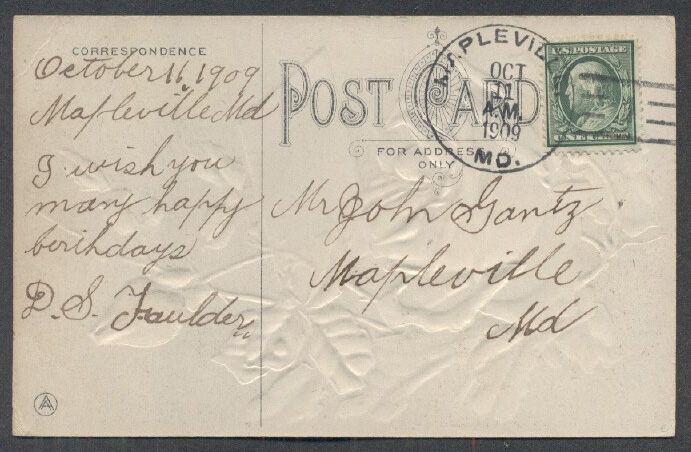 CORRESPONDENCE
October 11, 1909
Mapleville Md
I wish you
many happy
berihdays
D. S. Faulder
POST CARD
FOR ADDRESS
ONLY
MAPLEVILLE
OCT
11
A.M.
1909
MD.
U.S. POSTAGE
Mr John Gantz
Mapleville
Md